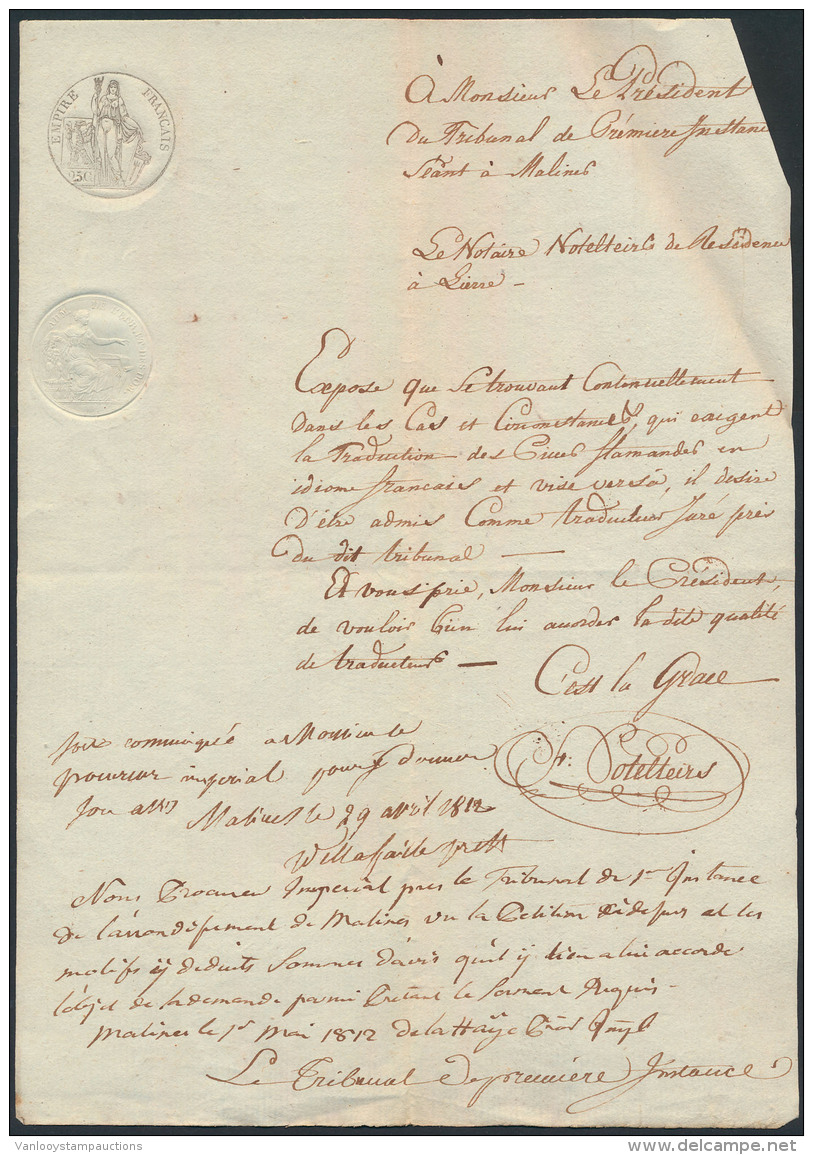 EMPIRE FRANÇAIS
25C
A Monsieur Le Président
Du Tribunal de Prémiere Instanc
Séant à Malines
Le Notaire Notelteirs de Residence
à Lierre -
Expose que se trouvant Contenuellement
dans les Cas et Circonstances, qui exigent
la Traduction des Pieces flamandes en
idiome francais et vise versâ, il desire
D'être admis Comme traducteur Juré près
du dit tribunal —
Et vous prie, Monsieur le Président,
de vouloir bien lui acorder la dite qualité
de traducteur —
C'est la Grace
F: Notelteirs
soit communiqué a Monsieur le
procureur imperial pour y donner
son avis
Malines le 29 avril 1812
Nous Procureur Imperial pres le Tribunal de 1re Instance
De l'arrondissement de Malines vu la Petition cidessus et les
motifs y deduits Sommes d'avis qu'il y lieu a lui accorde
l'objet de sa demande parmi Pretant le Serment Requis -
Malines le 1r Mai 1812 De la Haÿe Procr Impl
Le Tribunal de première Instance
Vanlooystampauctions
delcampe.net